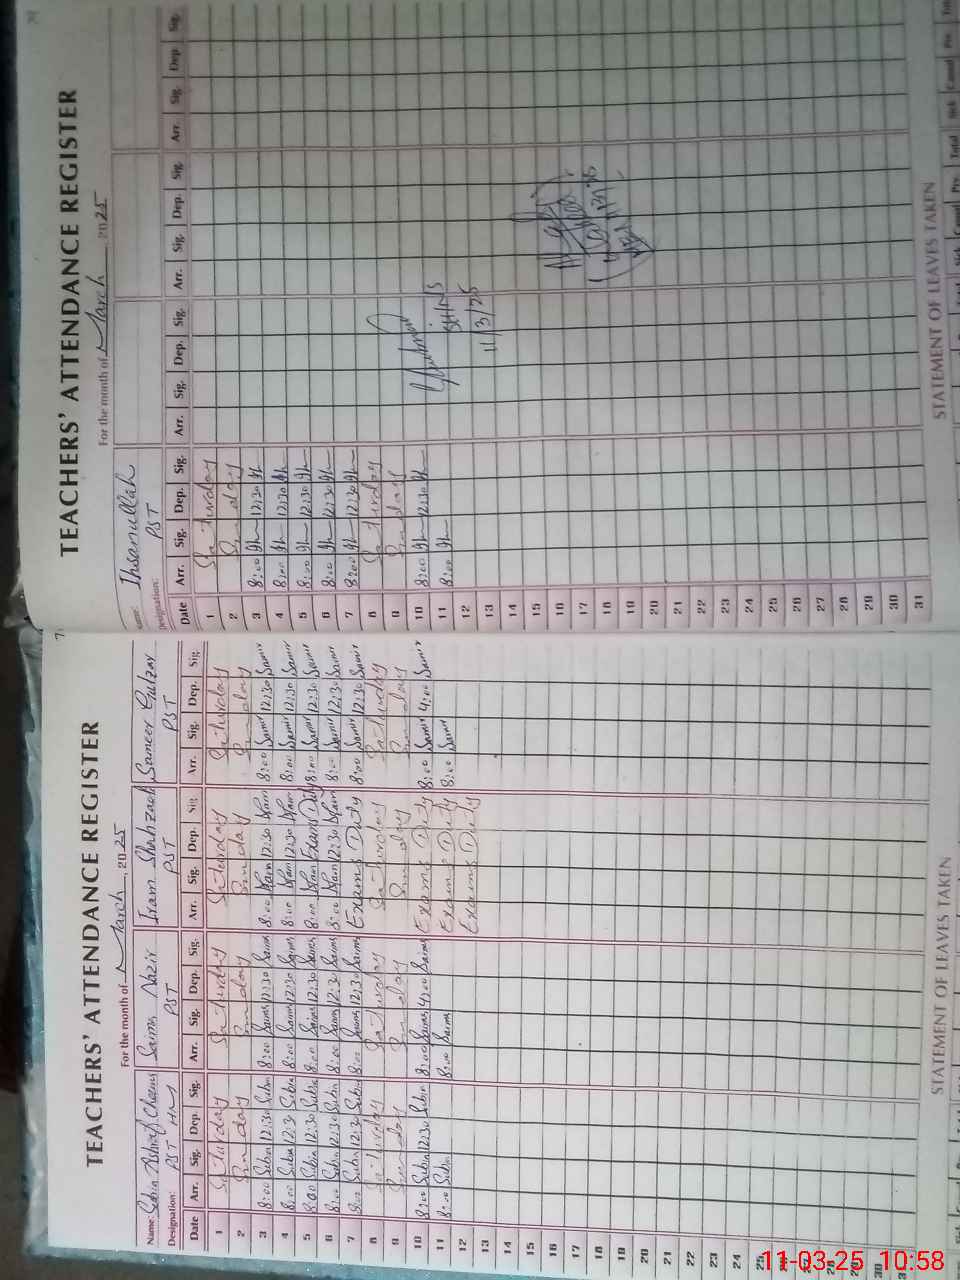 TEACHERS' ATTENDANCE REGISTER
For the month of March, 2025
Name: Ashraf Cheema Saima Nazir Iram Shahzadi Sameer Gulzar
Designation: PST HM PST PST PST
Date Arr. Sig. Dep. Sig. Arr. Sig. Dep. Sig. Arr. Sig. Dep. Sig. Arr. Sig. Dep. Sig.
1 Saturday Saturday Saturday Saturday
2 Sunday Sunday Sunday Sunday
3 8:00 12:30 8:00 Saima 12:30 Saima 8:00 12:30 8:00 Samir 12:30 Samir
4 8:00 12:30 8:00 Saima 12:30 Saima 8:00 12:30 8:00 Samir 12:30 Samir
5 8:00 12:30 8:00 Saima 12:30 Saima 8:00 Exams Duty 8:00 Samir 12:30 Samir
6 8:00 12:30 8:00 Saima 12:30 Saima 8:00 12:30 8:00 Samir 12:30 Samir
7 8:00 12:30 8:00 Saima 12:30 Saima Exams Duty 8:00 Samir 12:30 Samir
8 Saturday Saturday Saturday Saturday
9 Sunday Sunday Sunday Sunday
10 8:00 12:30 8:00 Saima 4:00 Saima Exams Duty 8:00 Samir 4:00 Samir
11 8:00 8:00 Saima Exams Duty 8:00 Samir
12 Exams Duty
13
14
15
16
17
18
19
20
21
22
23
24
25
26
27
28
29
30
31
STATEMENT OF LEAVES TAKEN
TEACHERS' ATTENDANCE REGISTER
For the month of March, 2025
Name: Ihsanullah
Designation: PST
Date Arr. Sig. Dep. Sig. Arr. Sig. Dep. Sig. Arr. Sig. Dep. Sig. Arr. Sig. Dep Sig.
1 Saturday
2 Sunday
3 8:00 12:30
4 8:00 12:30
5 8:00 12:30
6 8:00 12:30
7 8:00 12:30
8 Saturday
9 Sunday
10 8:00 12:30
11 8:00
12
13
14
15
16
17
18
19
20
21
22
23
24
25
26
27
28
29
30
31
11/3/25
STATEMENT OF LEAVES TAKEN
11-03-25 10:58